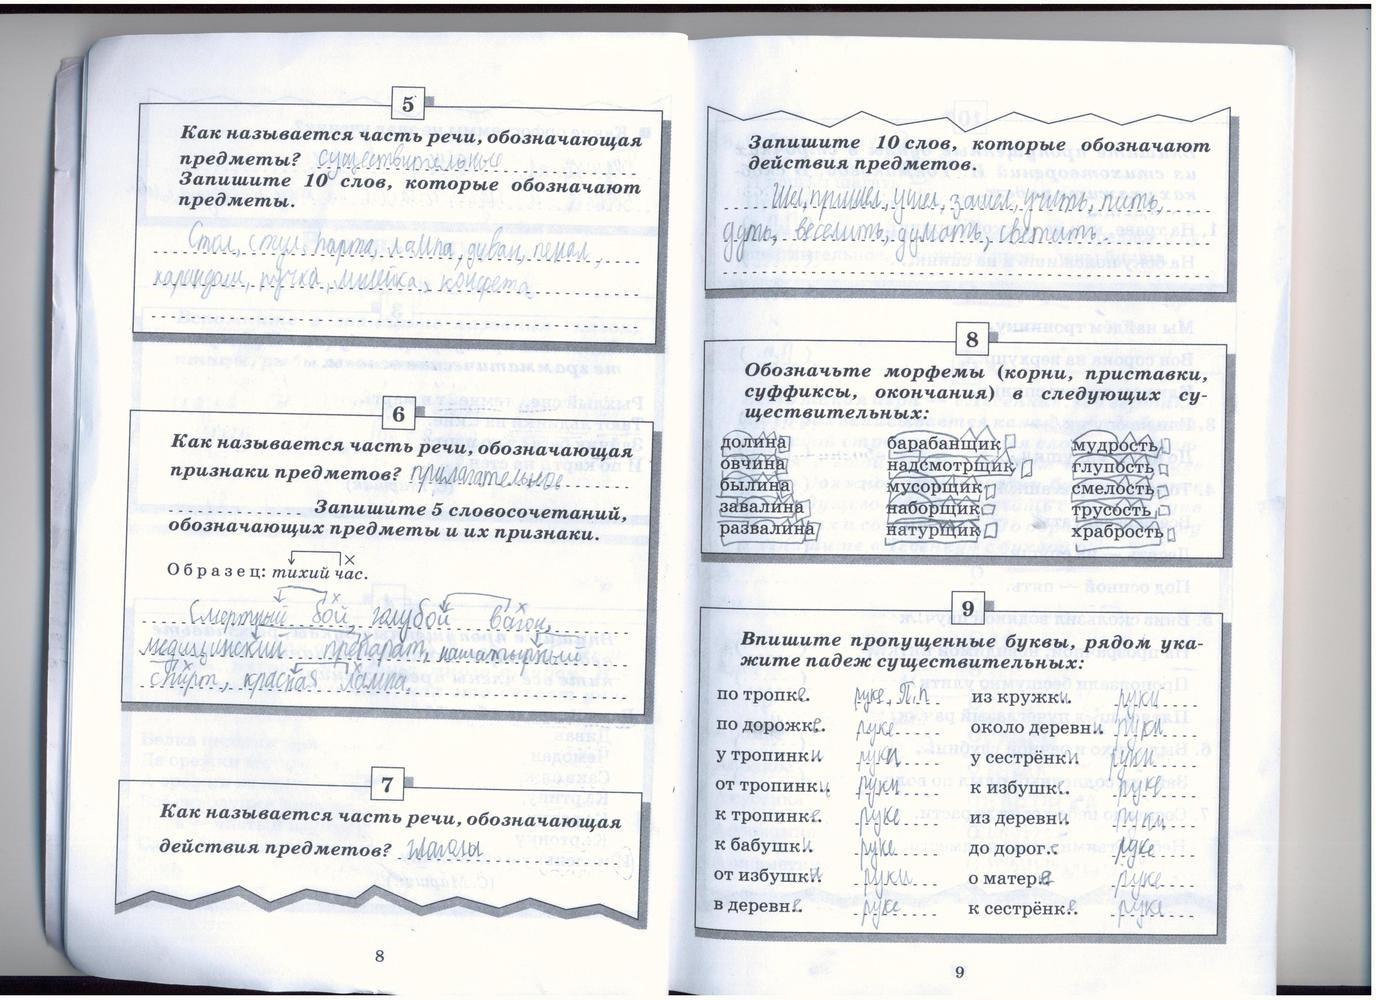 5
Как называется часть речи, обозначающая
предметы? существительные
Запишите 10 слов, которые обозначают
предметы.
Стол, стул, парта, лампа, диван, пенал,
карандаш, ручка, линейка, конфета
6
Как называется часть речи, обозначающая
признаки предметов? прилагательное
Запишите 5 словосочетаний,
обозначающих предметы и их признаки.
Образец: тихий час.
Смертный бой, голубой вагон,
медицинский препарат, нашатырный
спирт, красная лампа.
7
Как называется часть речи, обозначающая
действия предметов? глаголы
8
Запишите 10 слов, которые обозначают
действия предметов.
Шёл, пришёл, ушёл, зашёл, учить, пить,
дуть, веселить, думать, светить.
8
Обозначьте морфемы (корни, приставки,
суффиксы, окончания) в следующих су-
ществительных:
долина барабанщик мудрость
овчина надсмотрщик глупость
былина мусорщик смелость
завалина наборщик трусость
развалина натурщик храбрость
9
Впишите пропущенные буквы, рядом ука-
жите падеж существительных:
по тропке руке, П.п из кружки руки
по дорожке руке около деревни руки
у тропинки руки у сестрёнки руки
от тропинки руки к избушк.. руке
к тропинке руке из деревни руки
к бабушки руке до дорог.. руке
от избушки руки о матере руке
в деревне руке к сестрёнке руке
9